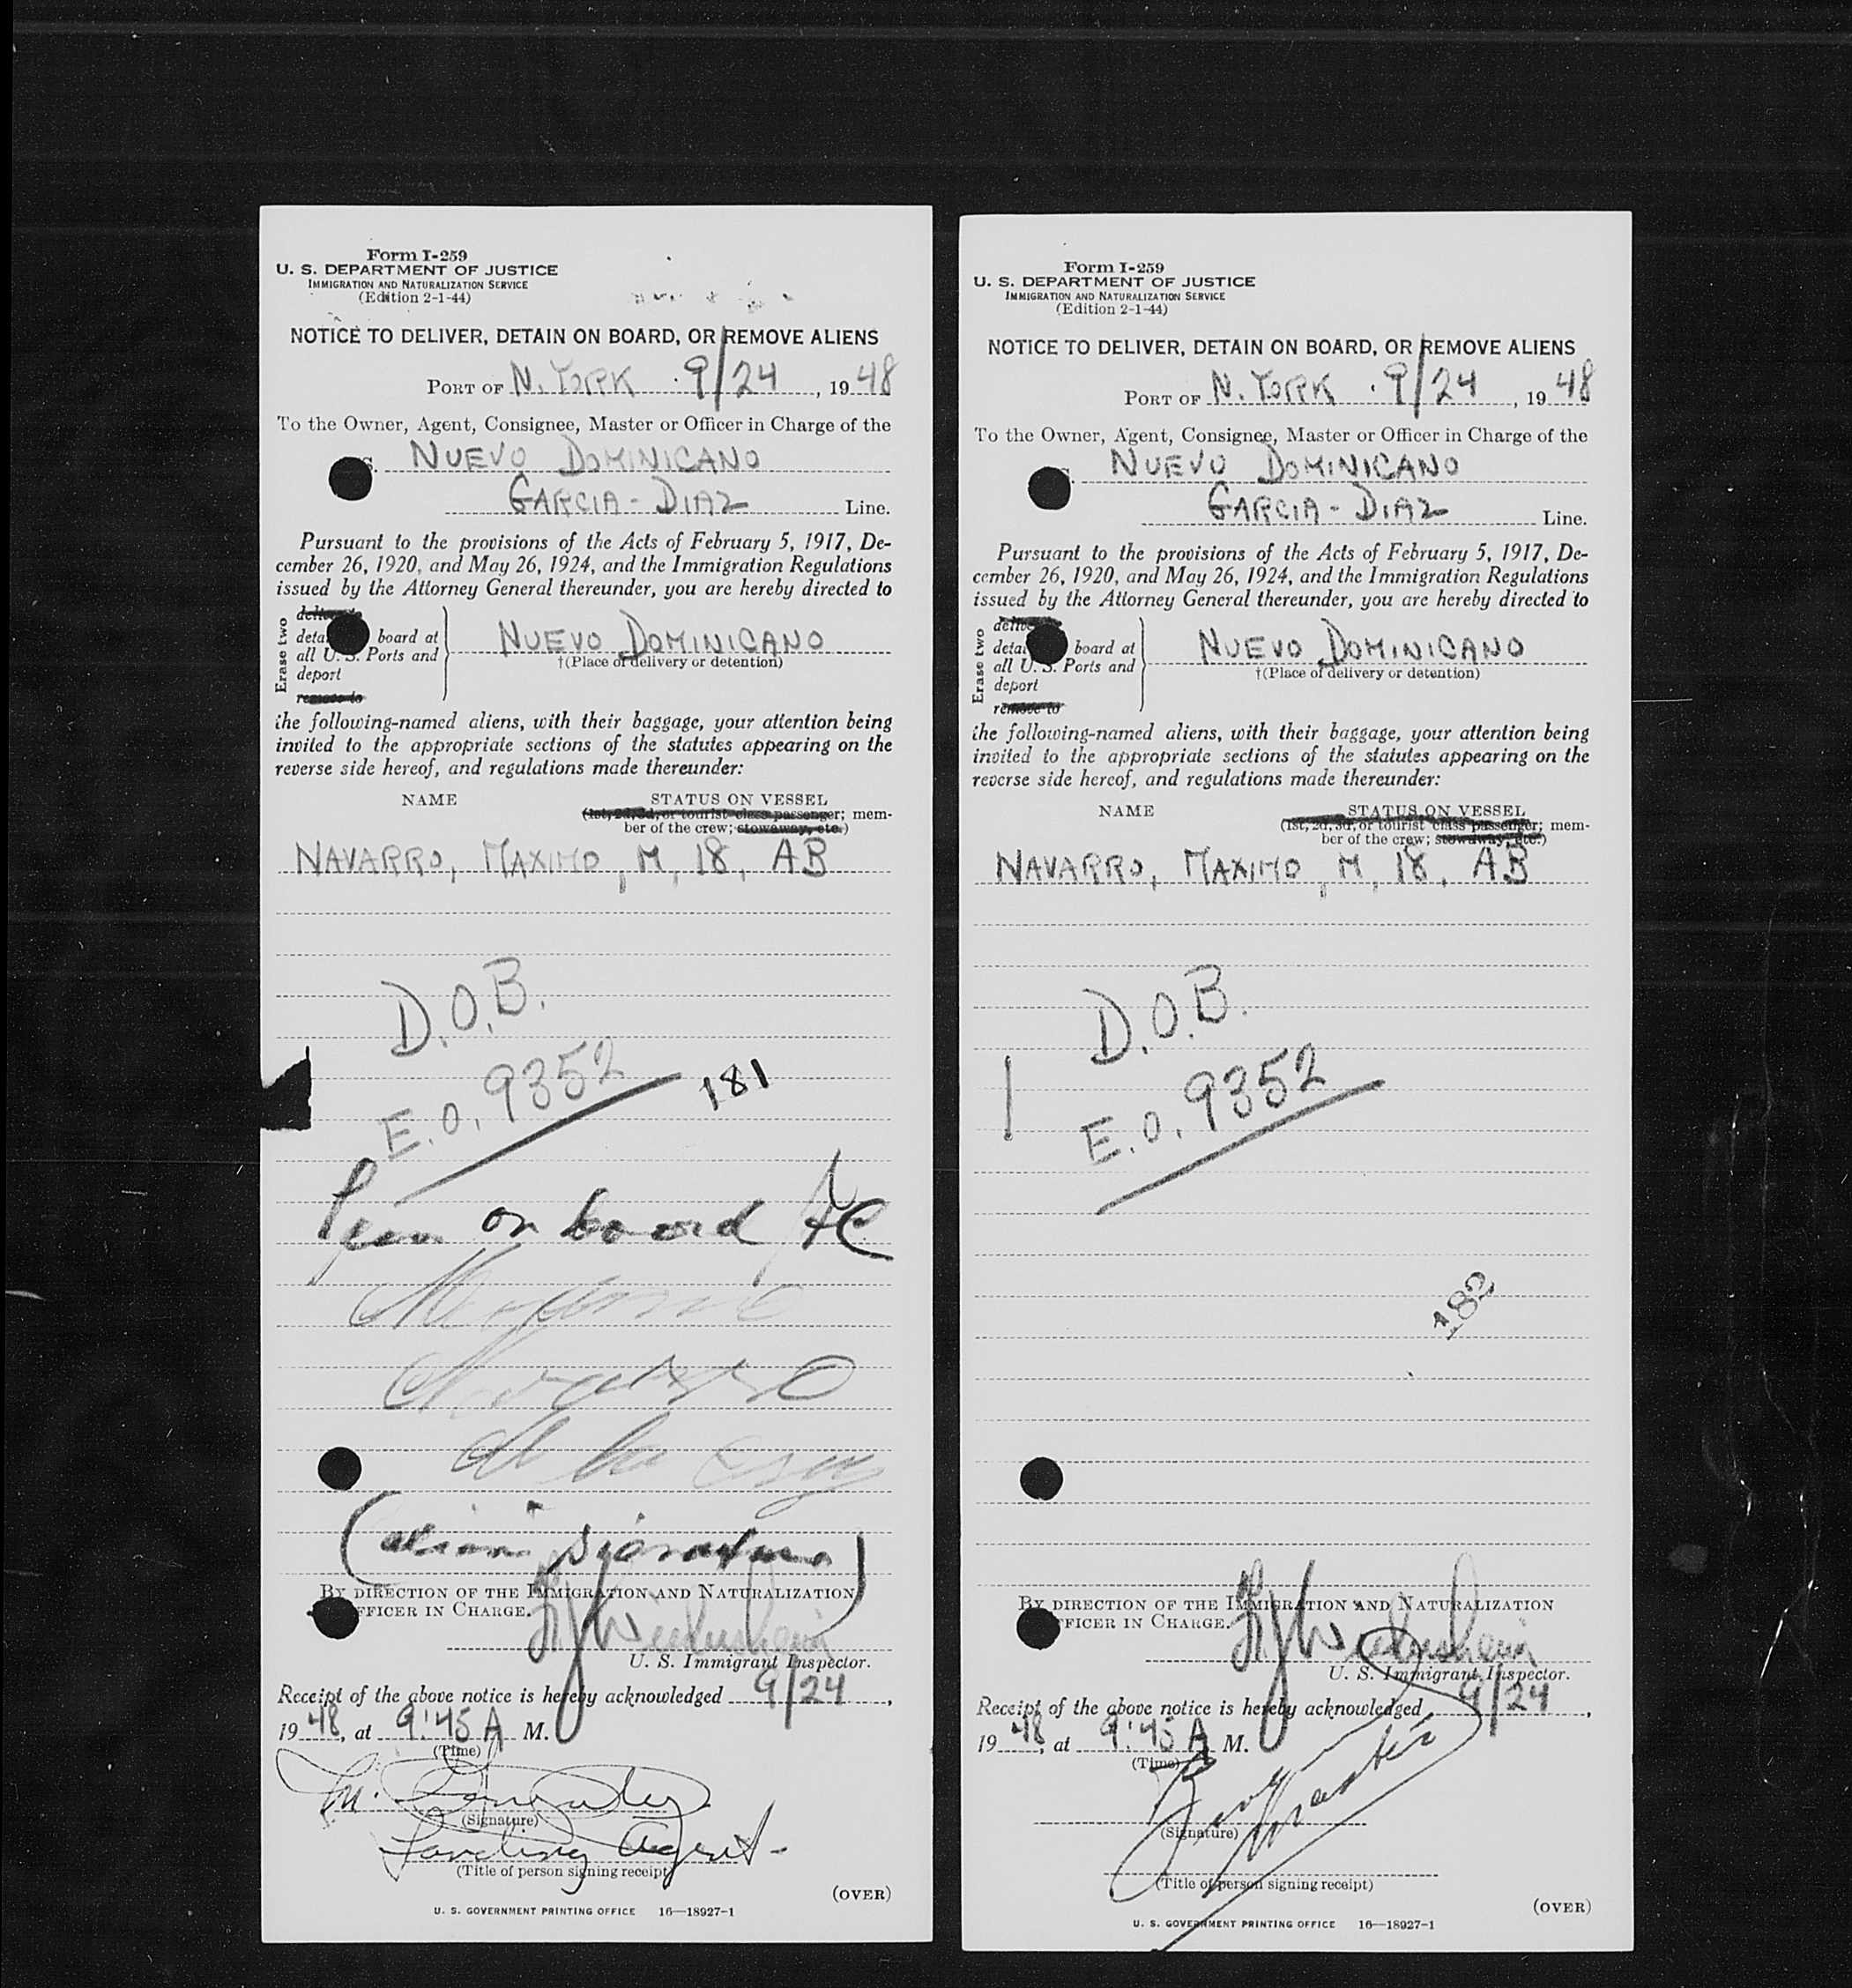 Form I-259
U. S. DEPARTMENT OF JUSTICE
IMMIGRATION AND NATURALIZATION SERVICE
(Edition 2-1-44)
NOTICE TO DELIVER, DETAIN ON BOARD, OR REMOVE ALIENS
PORT OF N. YORK 9/24, 1948
To the Owner, Agent, Consignee, Master or Officer in Charge of the
S. NUEVO DOMINICANO
GARCIA - DIAZ Line.
Pursuant to the provisions of the Acts of February 5, 1917, De-
cember 26, 1920, and May 26, 1924, and the Immigration Regulations
issued by the Attorney General thereunder, you are hereby directed to
Erase two
deliver to
deta board at
all U. S. Ports and
deport
remove to
NUEVO DOMINICANO
†(Place of delivery or detention)
the following-named aliens, with their baggage, your attention being
invited to the appropriate sections of the statutes appearing on the
reverse side hereof, and regulations made thereunder:
NAME STATUS ON VESSEL
(1st, 2d, 3d, or tourist class passenger; mem-
ber of the crew; stowaway, etc.)
NAVARRO, MAXIMO, M, 18, AB
D.O.B.
E.O. 9352
181
on board
Navarro
de la
(alien signature)
BY DIRECTION OF THE IMMIGRATION AND NATURALIZATION
FFICER IN CHARGE.
U. S. Immigrant Inspector.
Receipt of the above notice is hereby acknowledged 9/24,
1948, at 9:45 A M.
(Time)
(Signature)
Landing Agent-
(Title of person signing receipt)
(OVER)
U. S. GOVERNMENT PRINTING OFFICE 16—18927-1
Form I-259
U. S. DEPARTMENT OF JUSTICE
IMMIGRATION AND NATURALIZATION SERVICE
(Edition 2-1-44)
NOTICE TO DELIVER, DETAIN ON BOARD, OR REMOVE ALIENS
PORT OF N. YORK 9/24, 1948
To the Owner, Agent, Consignee, Master or Officer in Charge of the
NUEVO DOMINICANO
GARCIA - DIAZ Line.
Pursuant to the provisions of the Acts of February 5, 1917, De-
cember 26, 1920, and May 26, 1924, and the Immigration Regulations
issued by the Attorney General thereunder, you are hereby directed to
Erase two
delive
deta board at
all U. S. Ports and
deport
remove to
NUEVO DOMINICANO
†(Place of delivery or detention)
the following-named aliens, with their baggage, your attention being
invited to the appropriate sections of the statutes appearing on the
reverse side hereof, and regulations made thereunder:
NAME STATUS ON VESSEL
(1st, 2d, 3d, or tourist class passenger; mem-
ber of the crew; stowaway, etc.)
NAVARRO, MAXIMO, M, 18, AB
D.O.B.
E.O. 9352
182
BY DIRECTION OF THE IMMIGRATION AND NATURALIZATION
FICER IN CHARGE.
U. S. Immigrant Inspector.
Receipt of the above notice is hereby acknowledged 9/24,
1948, at 9:45 A M.
(Time)
(Signature)
(Title of person signing receipt)
(OVER)
U. S. GOVERNMENT PRINTING OFFICE 16—18927-1